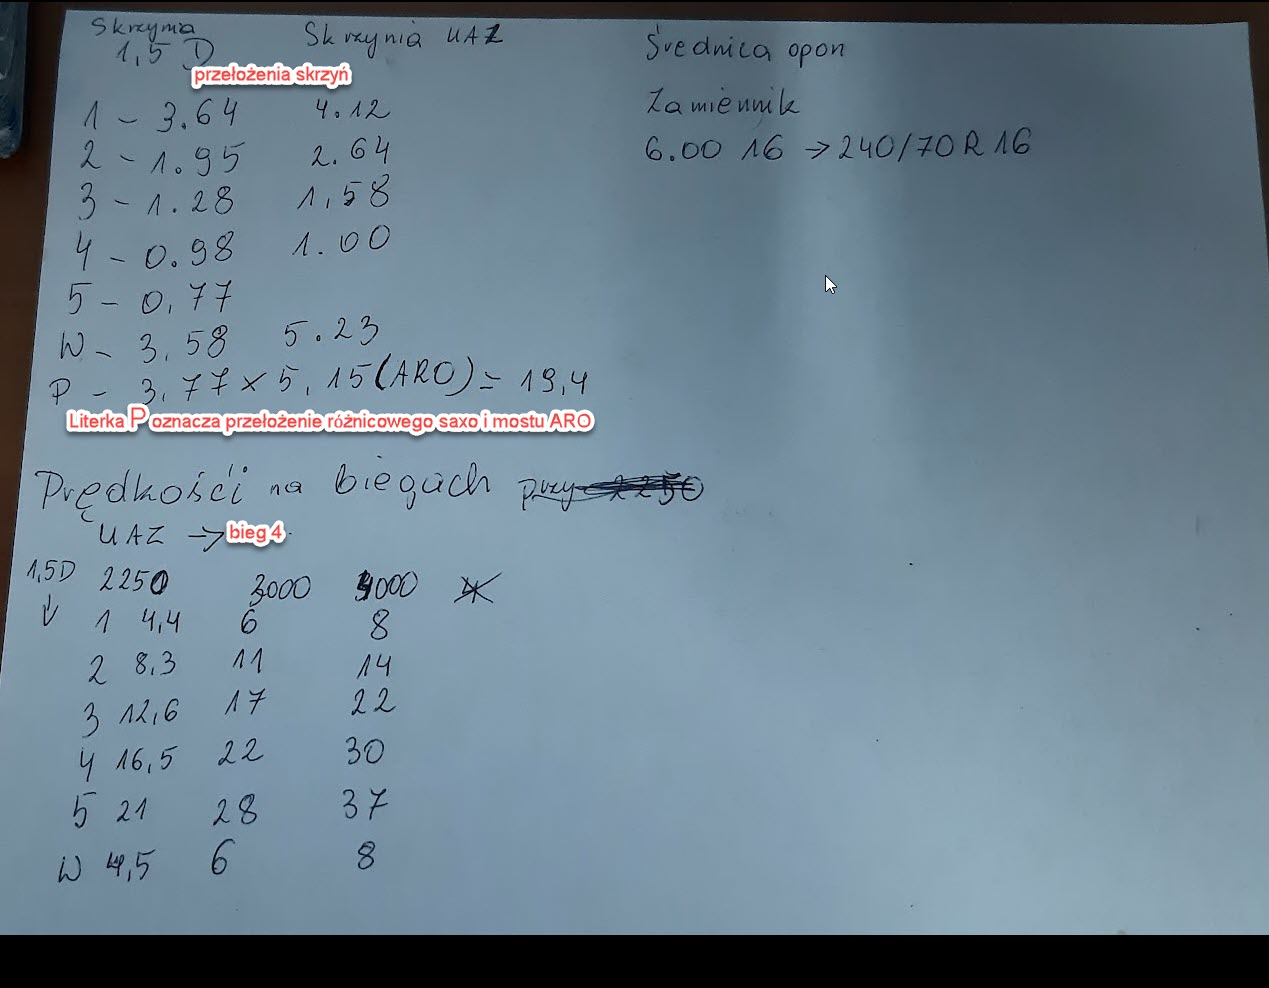 Skrzynia Skrzynia UAZ Średnica opon
1,5 D
przełożenia skrzyń
Zamiennik
1 - 3.64 4.12
6.00 16 → 240/70 R 16
2 - 1.95 2.64
3 - 1.28 1,58
4 - 0.98 1.00
5 - 0,77
W - 3,58 5.23
P - 3,77 x 5,15 (ARO) = 19,4
Literka P oznacza przełożenie różnicowego saxo i mostu ARO
Prędkości na biegach przy 2250
UAZ → bieg 4
1,5D 2250 3000 4000
↓ 1 4,4 6 8
2 8,3 11 14
3 12,6 17 22
4 16,5 22 30
5 21 28 37
W 4,5 6 8